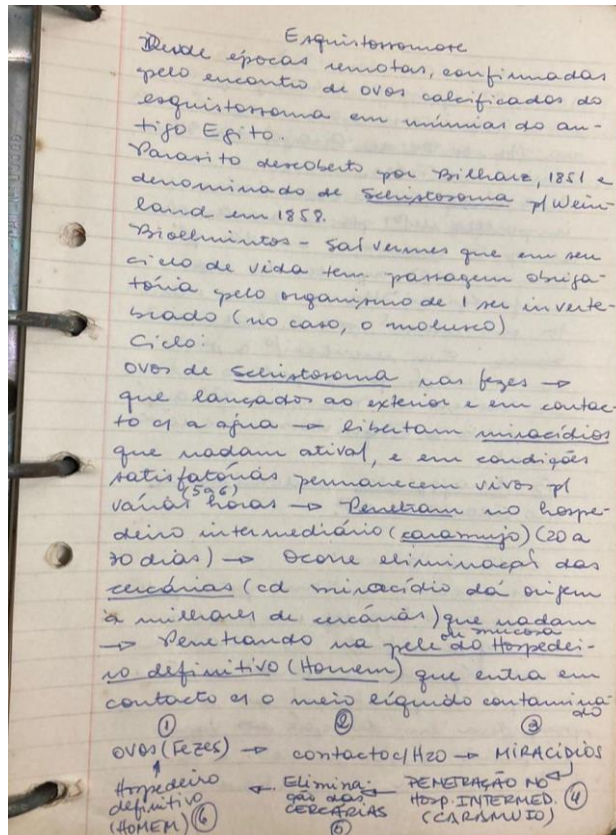 Esquistossomose
Desde épocas remotas, confirmadas
pelo encontro de ovos calcificados do
esquistossoma em múmias do an-
tigo Egito.
Parasito descoberto por Bilharz, 1851 e
denominado de Schistosoma p/ Wein-
land em 1858.
Bioelmintos - São vermes que em seu
ciclo de vida tem passagem obriga-
tória pelo organismo de 1 ser inverte-
brado (no caso, o molusco)
Ciclo:
ovos de Schistosoma nas fezes →
que lançados ao exterior e em contac-
to c/ a água → libertam miracídios
que nadam ativa/, e em condições
satisfatórias permanecem vivos p/
(5 a 6)
várias horas → Penetram no hospe-
deiro intermediário (caramujo) (20 a
30 dias) → Ocorre eliminação das
cercárias (cd miracídio dá origem
à milhares de cercárias) que nadam
ou mucosa
→ Penetrando na pele do Hospedei-
ro definitivo (Homem) que entra em
contacto c/ o meio líquido contamina
do
① ② ③
OVOS (FEZES) → contacto c/ H2O → MIRACÍDIOS
Hospedeiro definitivo (HOMEM) ⑥ ← Elimina-ção das CERCÁRIAS ⑤ ← PENETRAÇÃO NO HOSP. INTERMED. (CARAMUJO) ④